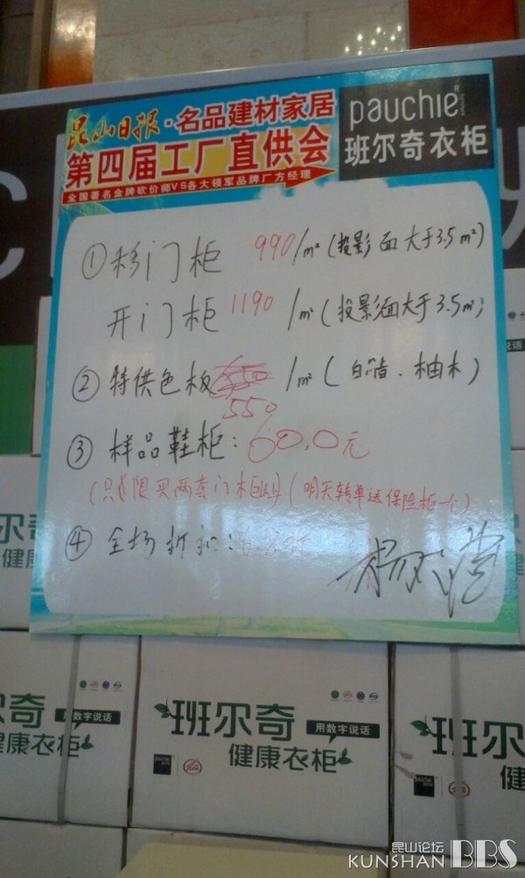 昆山日报·名品建材家居
第四届工厂直供会
全国著名金牌砍价师VS各大领军品牌厂方经理
pauchie®
班尔奇衣柜
① 移门柜 990/m² (投影面大于3.5m²)
开门柜 1190/m² (投影面大于3.5m²)
② 特供色板 /m² (白 . 柚木)
550
③ 样品鞋柜: 60.0元
(只限买两套门柜以上) (明天转单送保险柜一个)
④ 全场折扣:
说话
班尔奇
用数字说话
健康衣柜
班尔奇
用数字说话
健康衣柜
班尔
健康
昆山论坛
KUNSHAN BBS